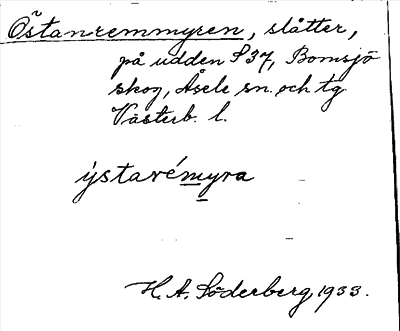 Östanremmyren, slåtter,
på udden S 37, Bomsjö
skog, Åsele sn. och tg
Västerb. l.
ýstarémyra
H. A. Söderberg, 1933.